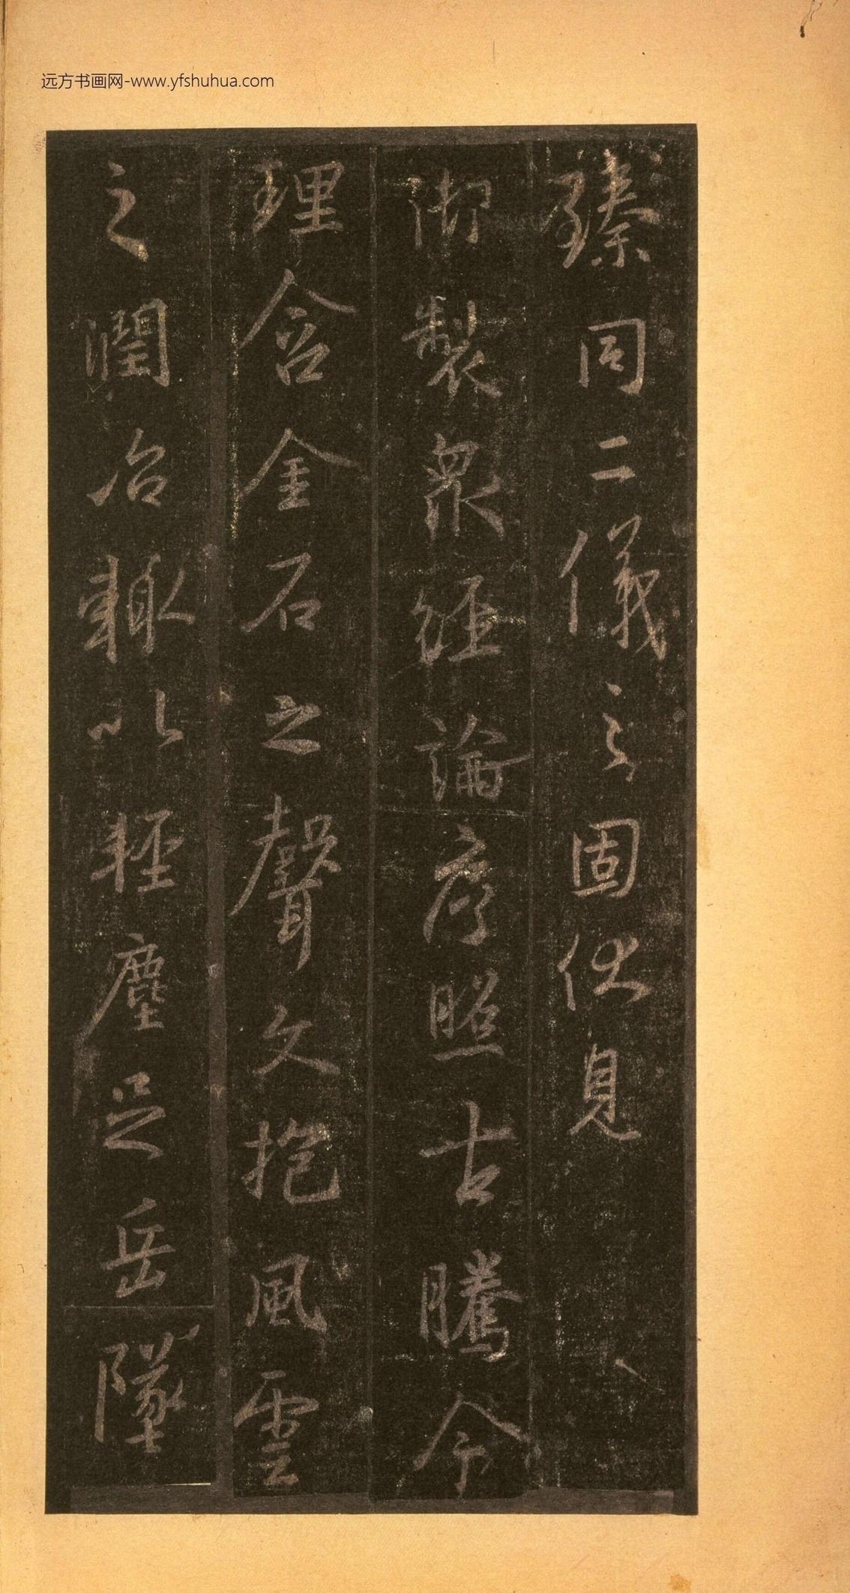 远方书画网-www.yfshuhua.com
臻同二儀之固伏見
御製衆經論序照古騰今
理含金石之聲文抱風雲
之潤治輒以輕塵足岳墜